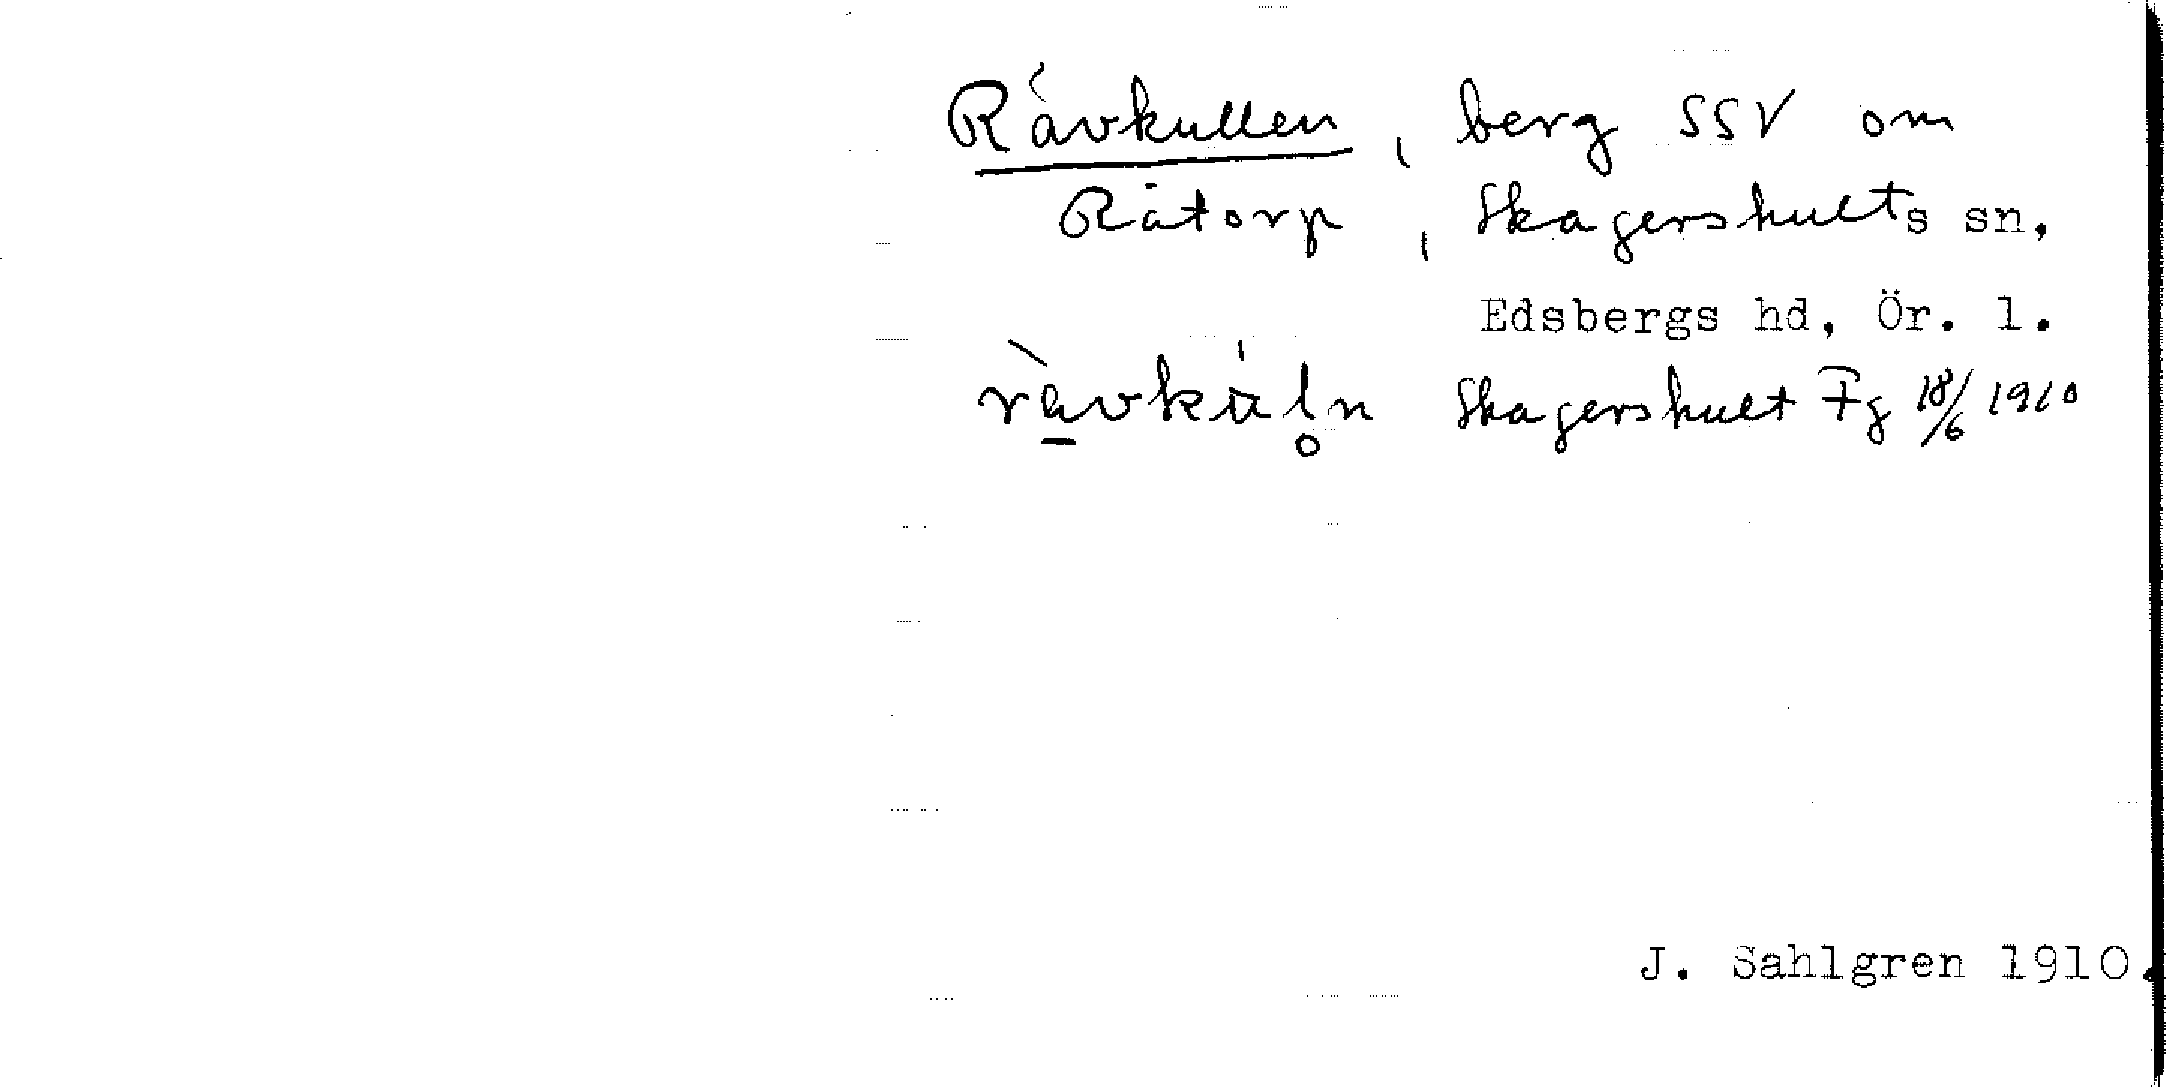 Rävkullen, berg SSV om
Råtorp, Skagershults sn,
Edsbergs hd, Ör. l.
Skagershult Fg 18/6 1910
J. Sahlgren 1910.